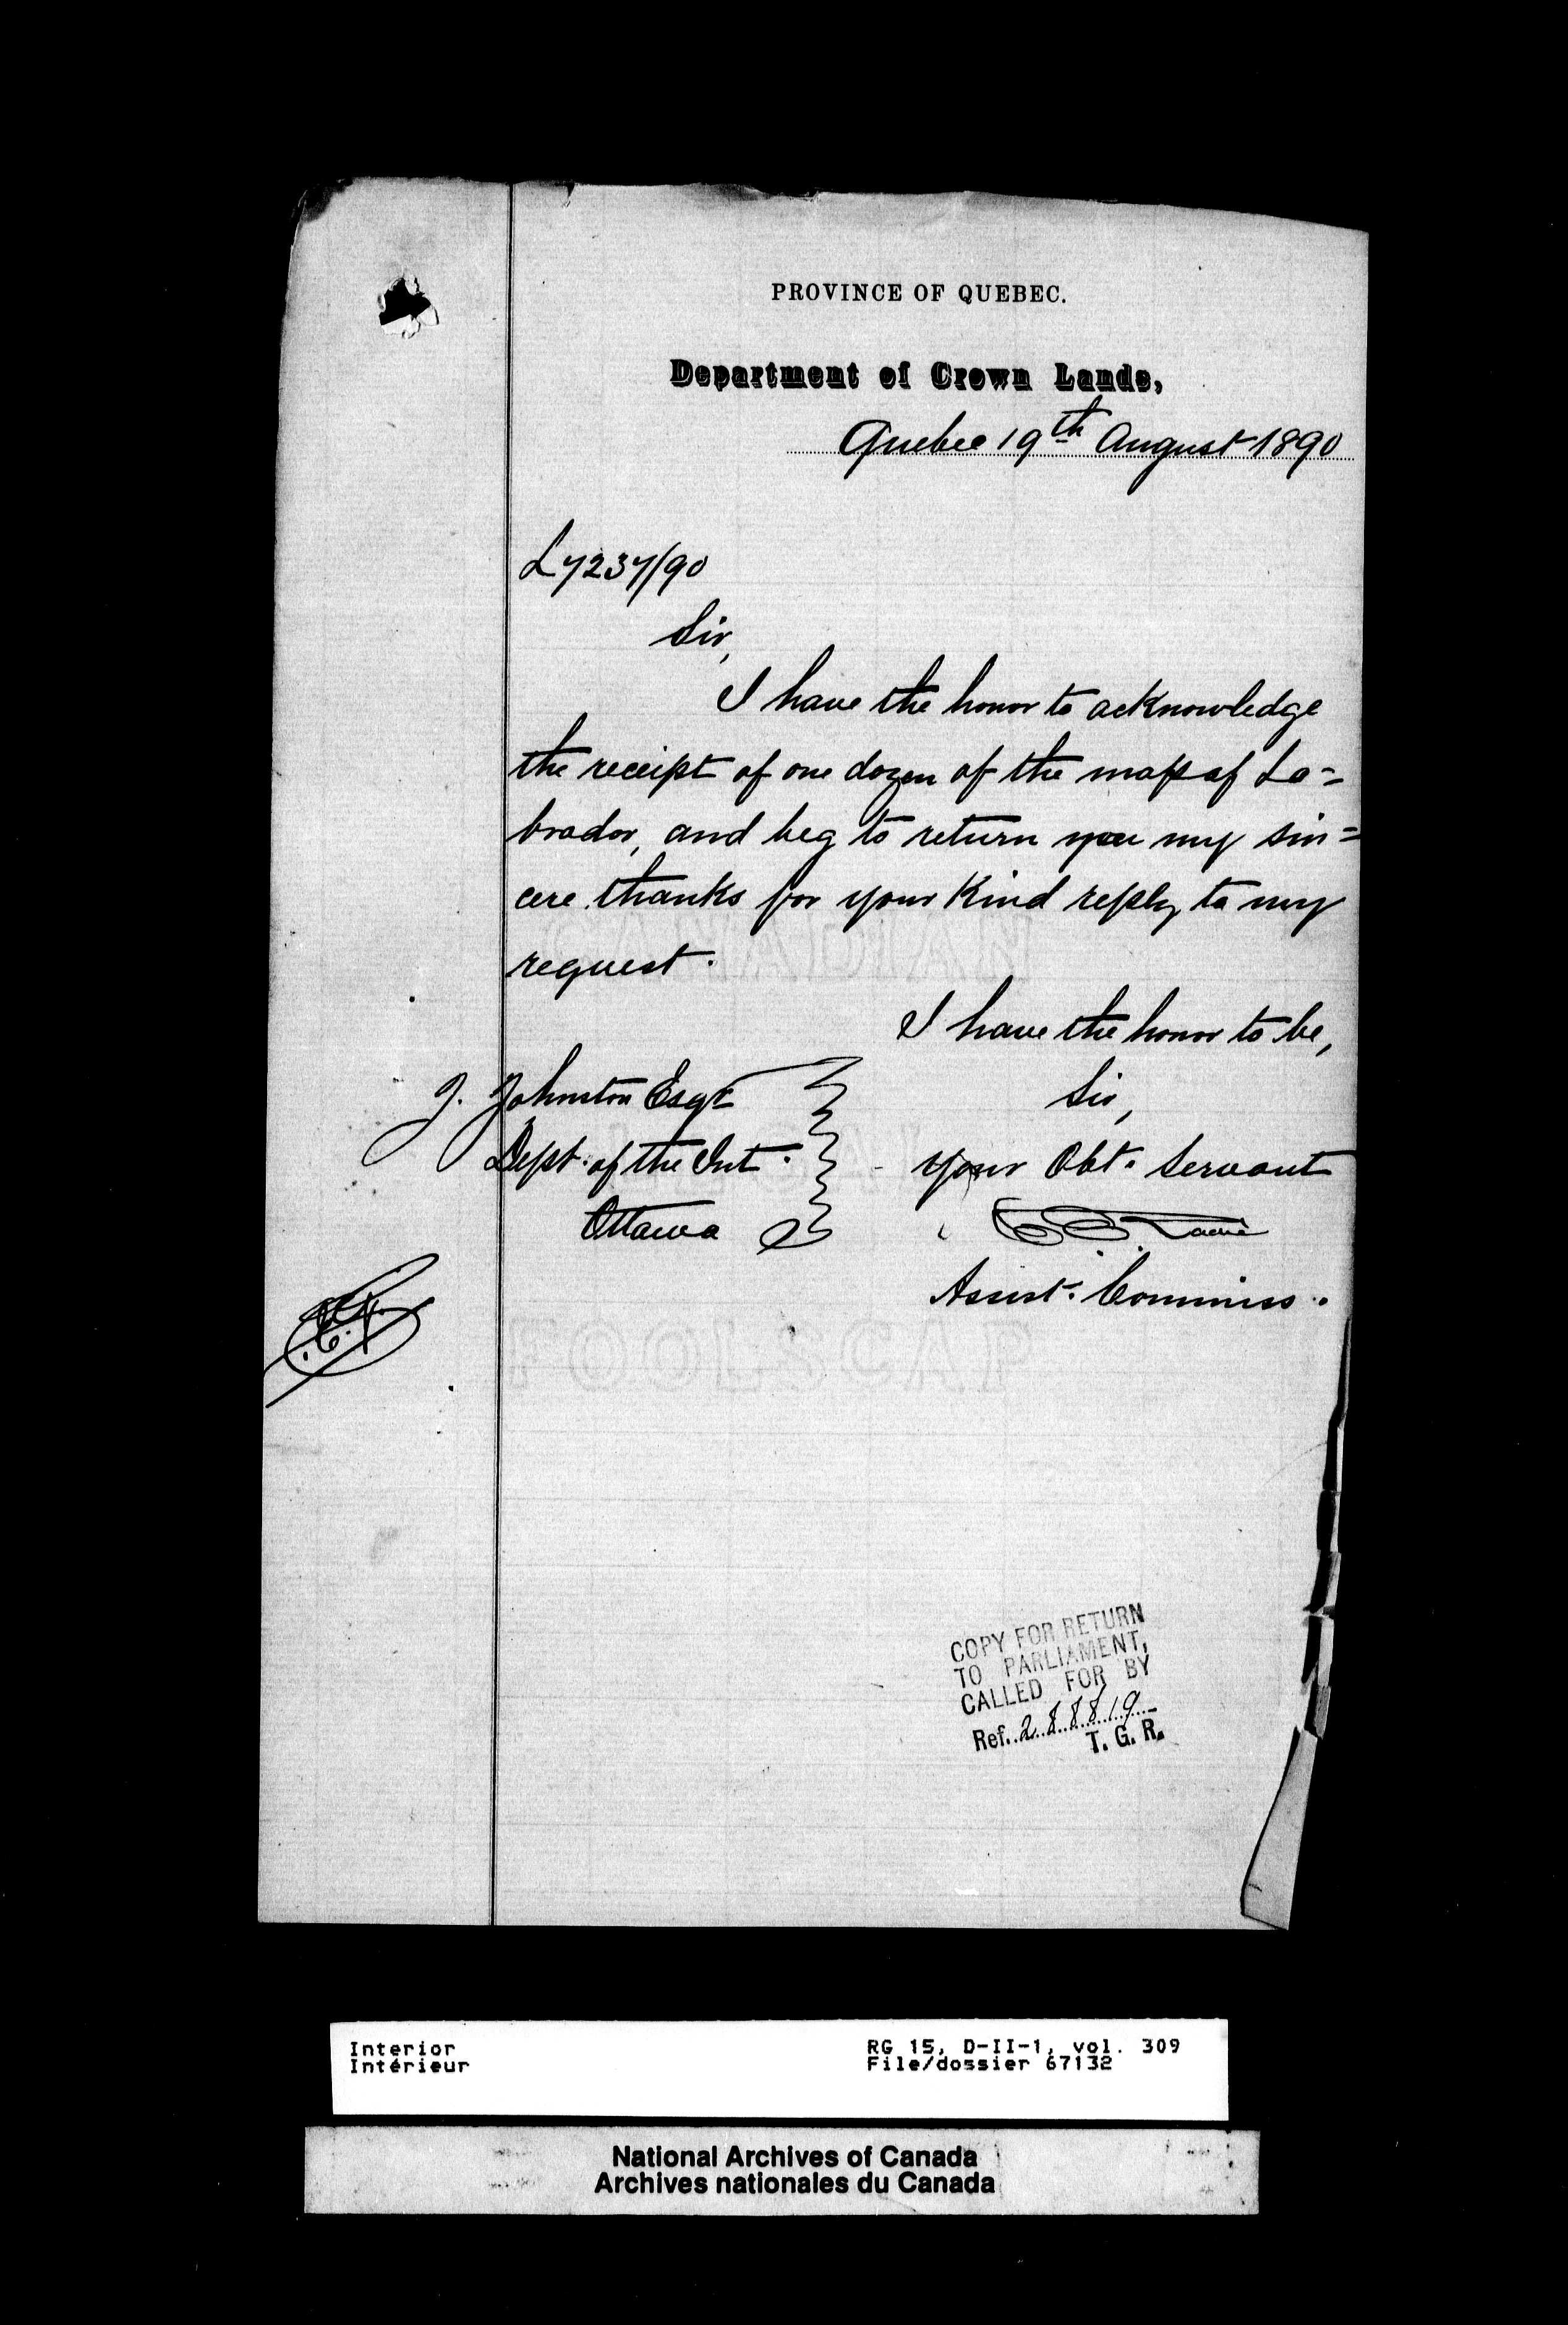 PROVINCE OF QUEBEC.
Department of Crown Lands,
Quebec 19th August 1890
L7237/90
Sir,
I have the honor to acknowledge
the receipt of one dozen of the map of La=
brador, and beg to return you my sin=
cere thanks for your Kind reply to my
request.
I have the honor to be,
Sir,
your Obt. Servant
E. E. Taché
Assist. Commiss.
J. Johnston Esqr
Dept. of the Int.
Ottawa
CANADIAN
FOOLSCAP
COPY FOR RETURN
TO PARLIAMENT,
CALLED FOR BY
Ref. 288819
T. G. R.
Interior
Intérieur
RG 15, D-II-1, vol. 309
File/dossier 67132
National Archives of Canada
Archives nationales du Canada